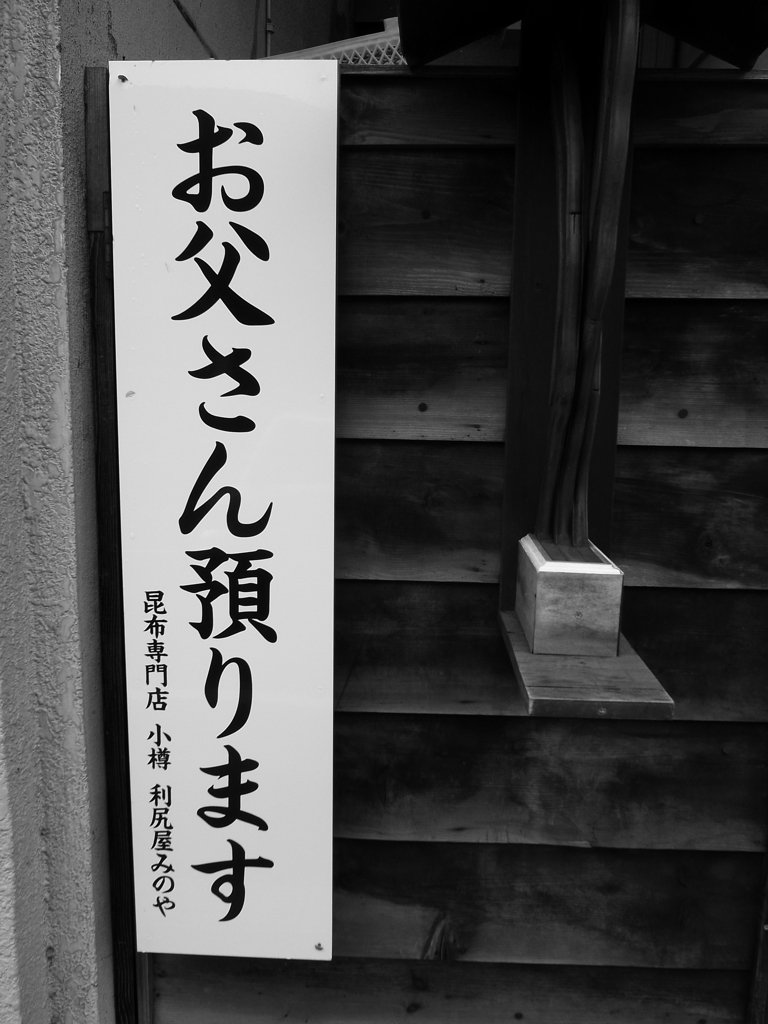 お父さん預ります
昆布専門店 小樽 利尻屋みのや